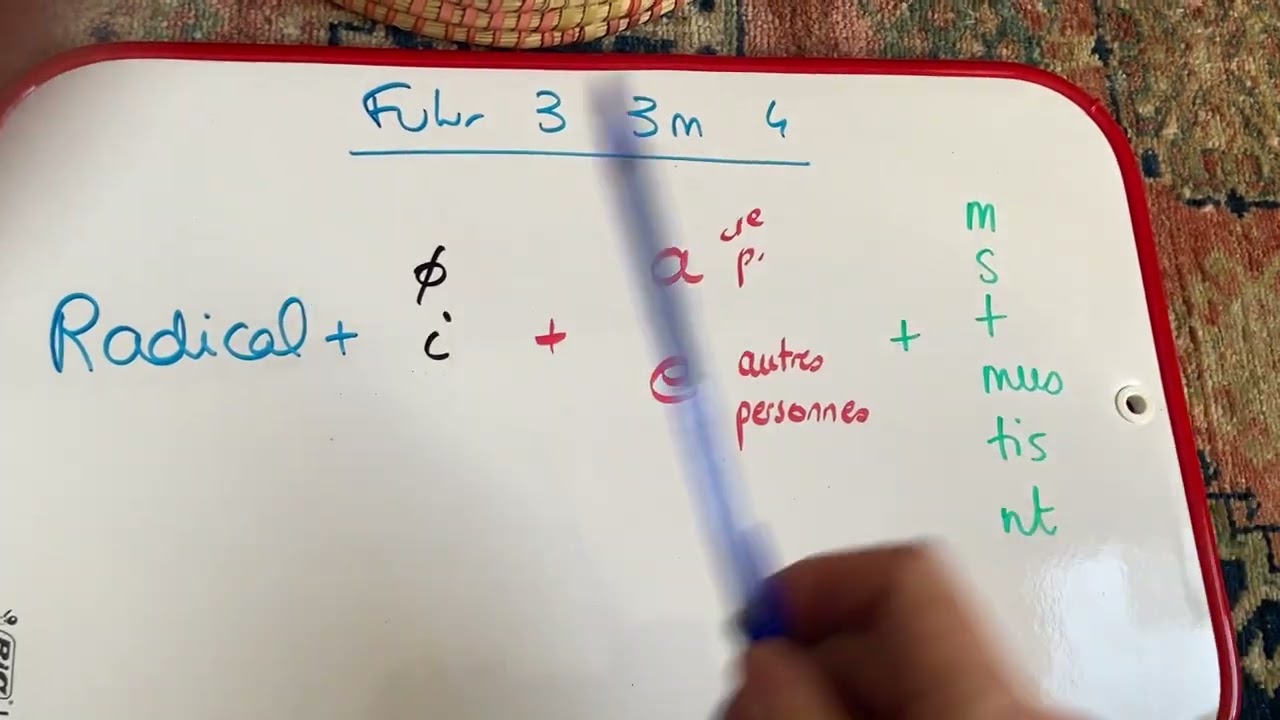 Futur 3 3m 4
Radical + ø i + a 1re p. e autres personnes + m s t mus tis nt
BIC